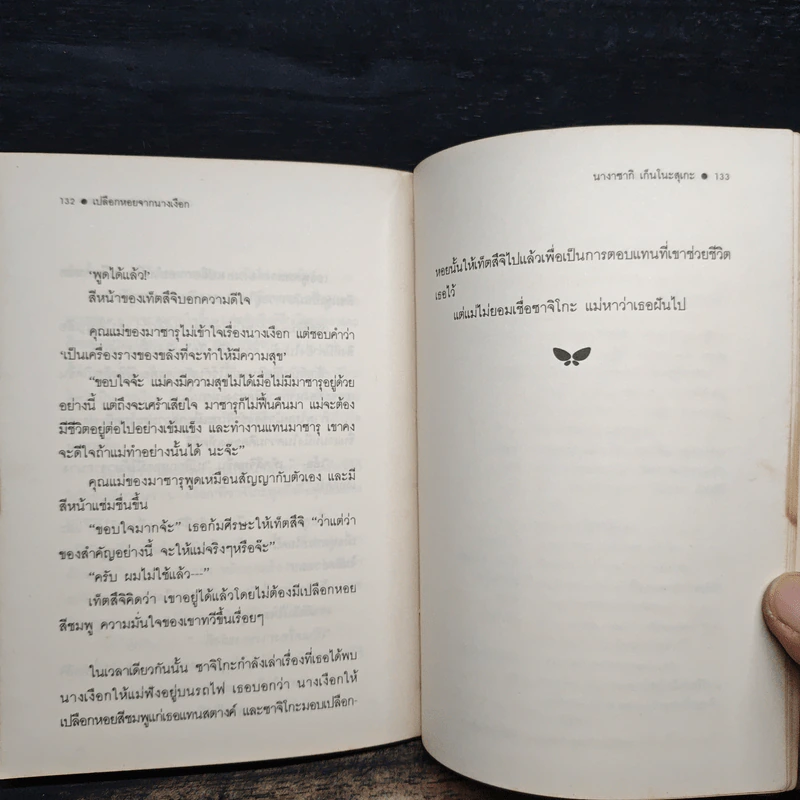 132 ● เปลือกหอยจากนางเงือก
'พูดได้แล้ว!'
สีหน้าของเท็ตสึจิบอกความดีใจ
คุณแม่ของมาซารุไม่เข้าใจเรื่องนางเงือก แต่ชอบคำว่า
'เป็นเครื่องรางของขลังที่จะทำให้มีความสุข'
"ขอบใจจ้ะ แม่คงมีความสุขไม่ได้เมื่อไม่มีมาซารุอยู่ด้วย
อย่างนี้ แต่ถึงจะเศร้าเสียใจ มาซารุก็ไม่ฟื้นคืนมา แม่จะต้อง
มีชีวิตอยู่ต่อไปอย่างเข้มแข็ง และทำงานแทนมาซารุ เขาคง
จะดีใจถ้าแม่ทำอย่างนั้นได้ นะจ๊ะ"
คุณแม่ของมาซารุพูดเหมือนสัญญากับตัวเอง และมี
สีหน้าแช่มชื่นขึ้น
"ขอบใจมากจ้ะ" เธอก้มศีรษะให้เท็ตสึจิ "ว่าแต่ว่า
ของสำคัญอย่างนี้ จะให้แม่จริงๆหรือจ๊ะ"
"ครับ ผมไม่ใช้แล้ว---"
เท็ตสึจิคิดว่า เขาอยู่ได้แล้วโดยไม่ต้องมีเปลือกหอย
สีชมพู ความมั่นใจของเขาทวีขึ้นเรื่อยๆ
ในเวลาเดียวกันนั้น ซาจิโกะกำลังเล่าเรื่องที่เธอได้พบ
นางเงือกให้แม่ฟังอยู่บนรถไฟ เธอบอกว่า นางเงือกให้
เปลือกหอยสีชมพูแก่เธอแทนสตางค์ และซาจิโกะมอบเปลือก-
นางาซากิ เก็นโนะสุเกะ ● 133
หอยนั้นให้เท็ตสึจิไปแล้วเพื่อเป็นการตอบแทนที่เขาช่วยชีวิต
เธอไว้
แต่แม่ไม่ยอมเชื่อซาจิโกะ แม่หาว่าเธอฝันไป